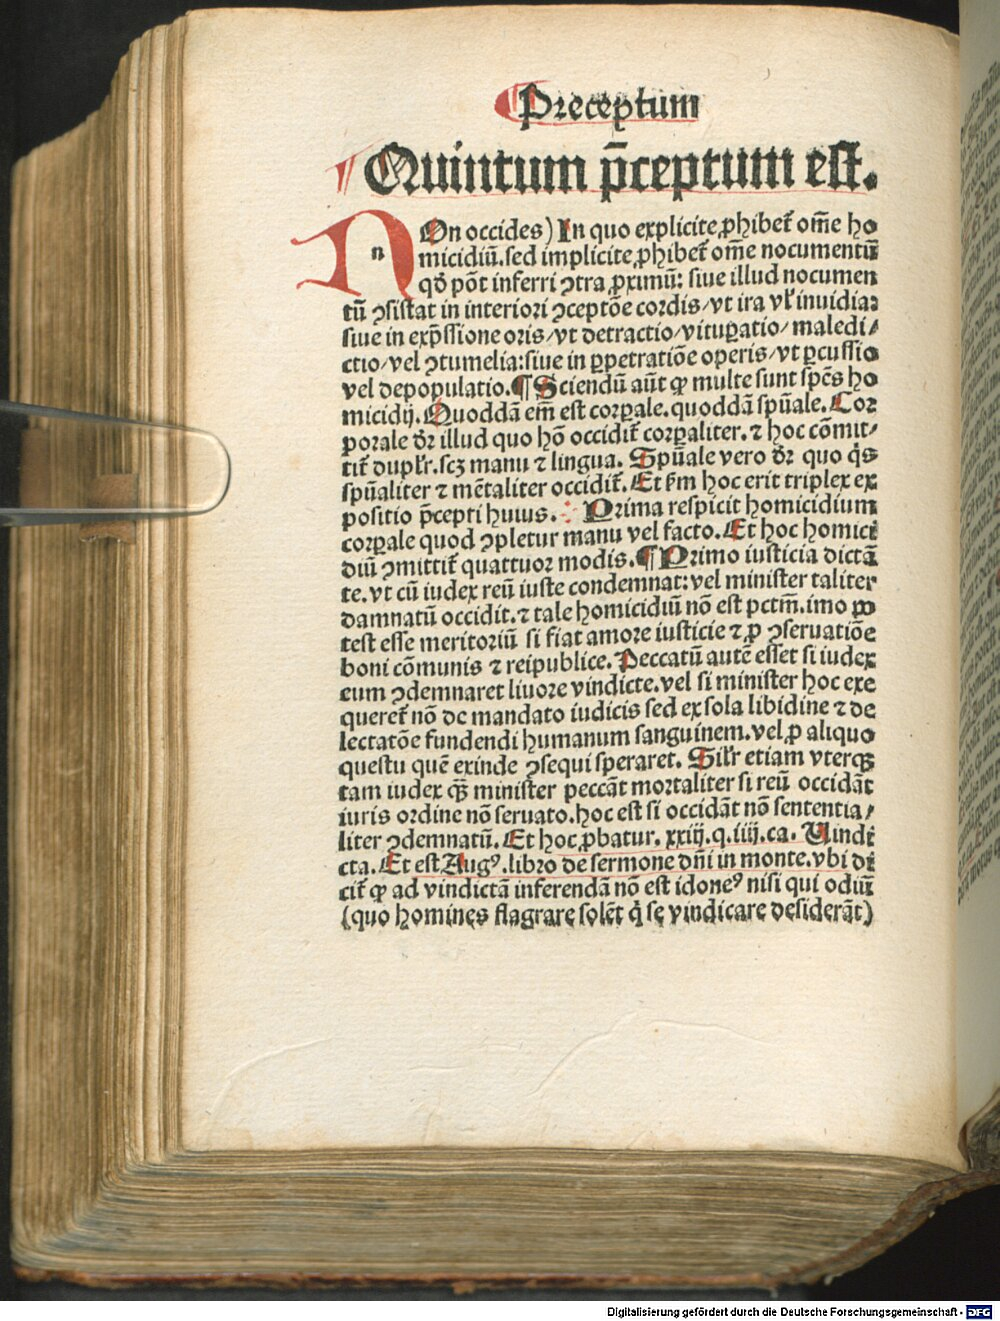 ¶ Preceptum
¶ Quintum p̄ceptum est.
NOn occides) In quo explicite ꝓhibet᷑ om̄e ho
micidiū. sed implicite ꝓhibet᷑ om̄e nocumentū
qđ pōt inferri ꝯtra ꝓximū: siue illud nocumen
tū ꝯsistat in interiori ꝯceptōe cordis/ vt ira vł inuidia:
siue in exp̄ssione oris/ vt detractio/ vituꝑatio/ maledi/
ctio/ vel ꝯtumelia: siue in ꝑpetratiōe operis/ vt ꝑcussio
vel depopulatio. ¶ Sciendū aūt ꝙ multe sunt spēs ho
micidij. Quoddā em̄ est corꝑale. quoddā spūale. Cor
porale dr̄ illud quo hō occidit᷑ corꝑaliter. ⁊ hoc cōmit/
tit᷑ duplr̄. scꝫ manu ⁊ lingua. Spūale vero dr̄ quo q̇s
spūaliter ⁊ mētaliter occidit᷑. Et ẜm hoc erit triplex ex
positio p̄cepti huius. Prima respicit homicidium
corꝑale quod ꝯpletur manu vel facto. Et hoc homici
diū ꝯmittit᷑ quattuor modis. ¶ Primo iusticia dictā
te. vt cū iudex reū iuste condemnat: vel minister taliter
damnatū occidit. ⁊ tale homicidiū nō est pctm̄. imo po
test esse meritoriū si fiat amore iusticie ⁊ ꝓ ꝯseruatiōe
boni cōmunis ⁊ reipublice. Peccatū autē esset si iudex
eum ꝯdemnaret liuore vindicte. vel si minister hoc exe
queret᷑ nō de mandato iudicis sed ex sola libidine ⁊ de
lectatōe fundendi humanum sanguinem. vel ꝓ aliquo
questu quē exinde ꝯsequi speraret. Silr̄ etiam vterqꝫ
tam iudex qꝫ̄ minister peccāt mortaliter si reū occidāt
iuris ordine nō seruato. hoc est si occidāt nō sententia/
liter ꝯdemnatū. Et hoc ꝓbatur. xxiij. q. iiij. ca. Uindi
cta. Et est Augꝰ. libro de sermone dn̄i in monte. vbi di
cit᷑ ꝙ ad vindictā inferendā nō est idoneꝰ nisi qui odiū
(quo homines flagrare solēt q̇ se vindicare desiderāt)
Digitalisierung gefördert durch die Deutsche Forschungsgemeinschaft - DFG